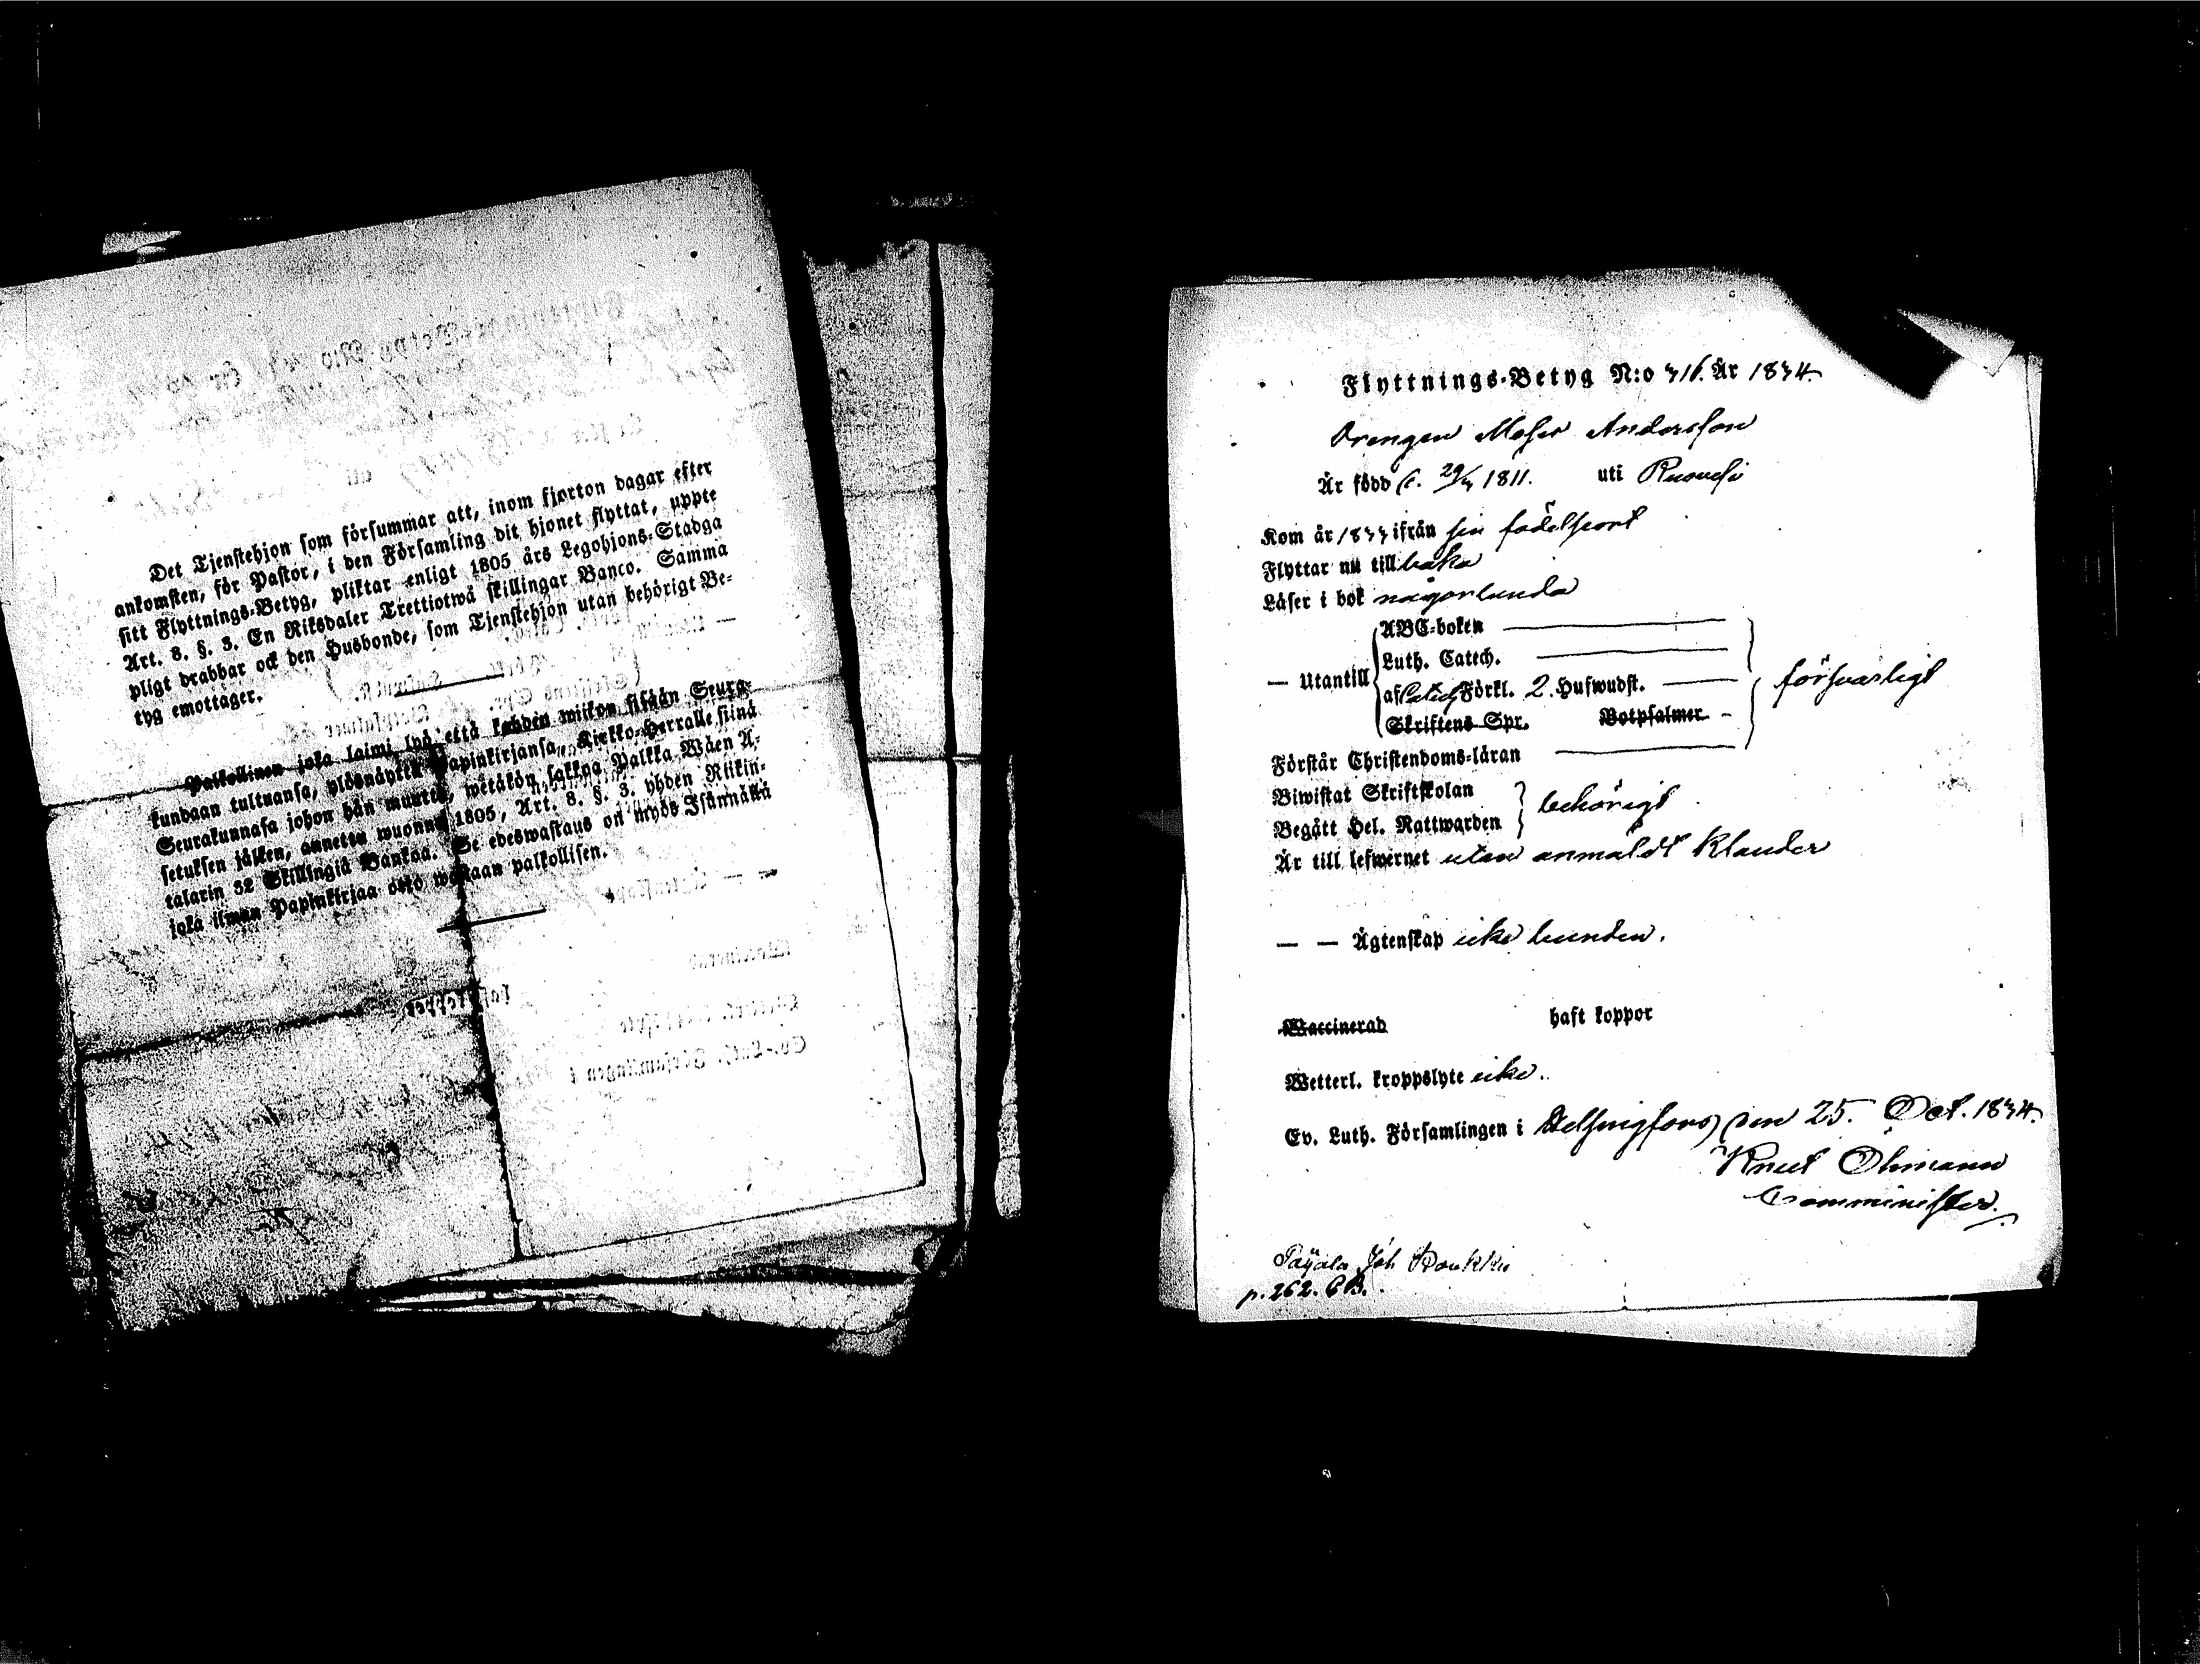 Det Tjenstehjon som försummar att, inom fjorton dagar efter
ankomsten, för Pastor, i den Församling dit hjonet flyttat, uppte
sitt Flyttnings-Betyg, pliktar enligt 1805 års Legohjons-Stadga
Art. 8. §. 3. En Riksdaler Trettiotwå skillingar Banco. Samma
pligt drabbar ock den Husbonde, som Tjenstehjon utan behörigt Be-
tyg emottager.
Palkollinen joka laimi lyö, että kahden wiikon sisään Seura-
kundaan tultuansa, ylösnäyttä Papinkirjansa, Kirkko-Herralle siinä
Seurakunnasa johon hän muutta, wetäkön sakkoa Palkka Wäen A-
setuksen jälken, annettu wuonna 1805, Art. 8. §. 3. yhden Riikin-
talarin 32 Skillingiä Bankoa. Se edeswastaus on myös Isännällä
joka ilman Papinkirjaa otto wastaan palkollisen.
Flyttnings-Betyg N:o 316. År 1834.
Drengen Moses Andersson
År född d. 29/4 1811. uti Ruovesi
Kom år 1833 ifrån sin födelseort
Flyttar nu till baka
Läser i bok någorlunda
ABC-boken
Luth. Catech.
— Utantill af Catech. Förkl. 2. Hufwudst. försvarligt
Skriftens Spr. Botpsalmer
Förstår Christendoms-läran
Biwistat Skriftskolan
Begått Hel. Nattwarden behörigt
Är till lefwernet utan anmäldt klander
— — Ägtenskap icke bunden.
Waccinerad haft koppor
Wetterl. kroppslyte icke.
Ev. Luth. Församlingen i Helsingfors, den 25. Oct. 1834.
Knut Öhmann
Comminister.
Pajala Joh Roukku
p. 262. CB.